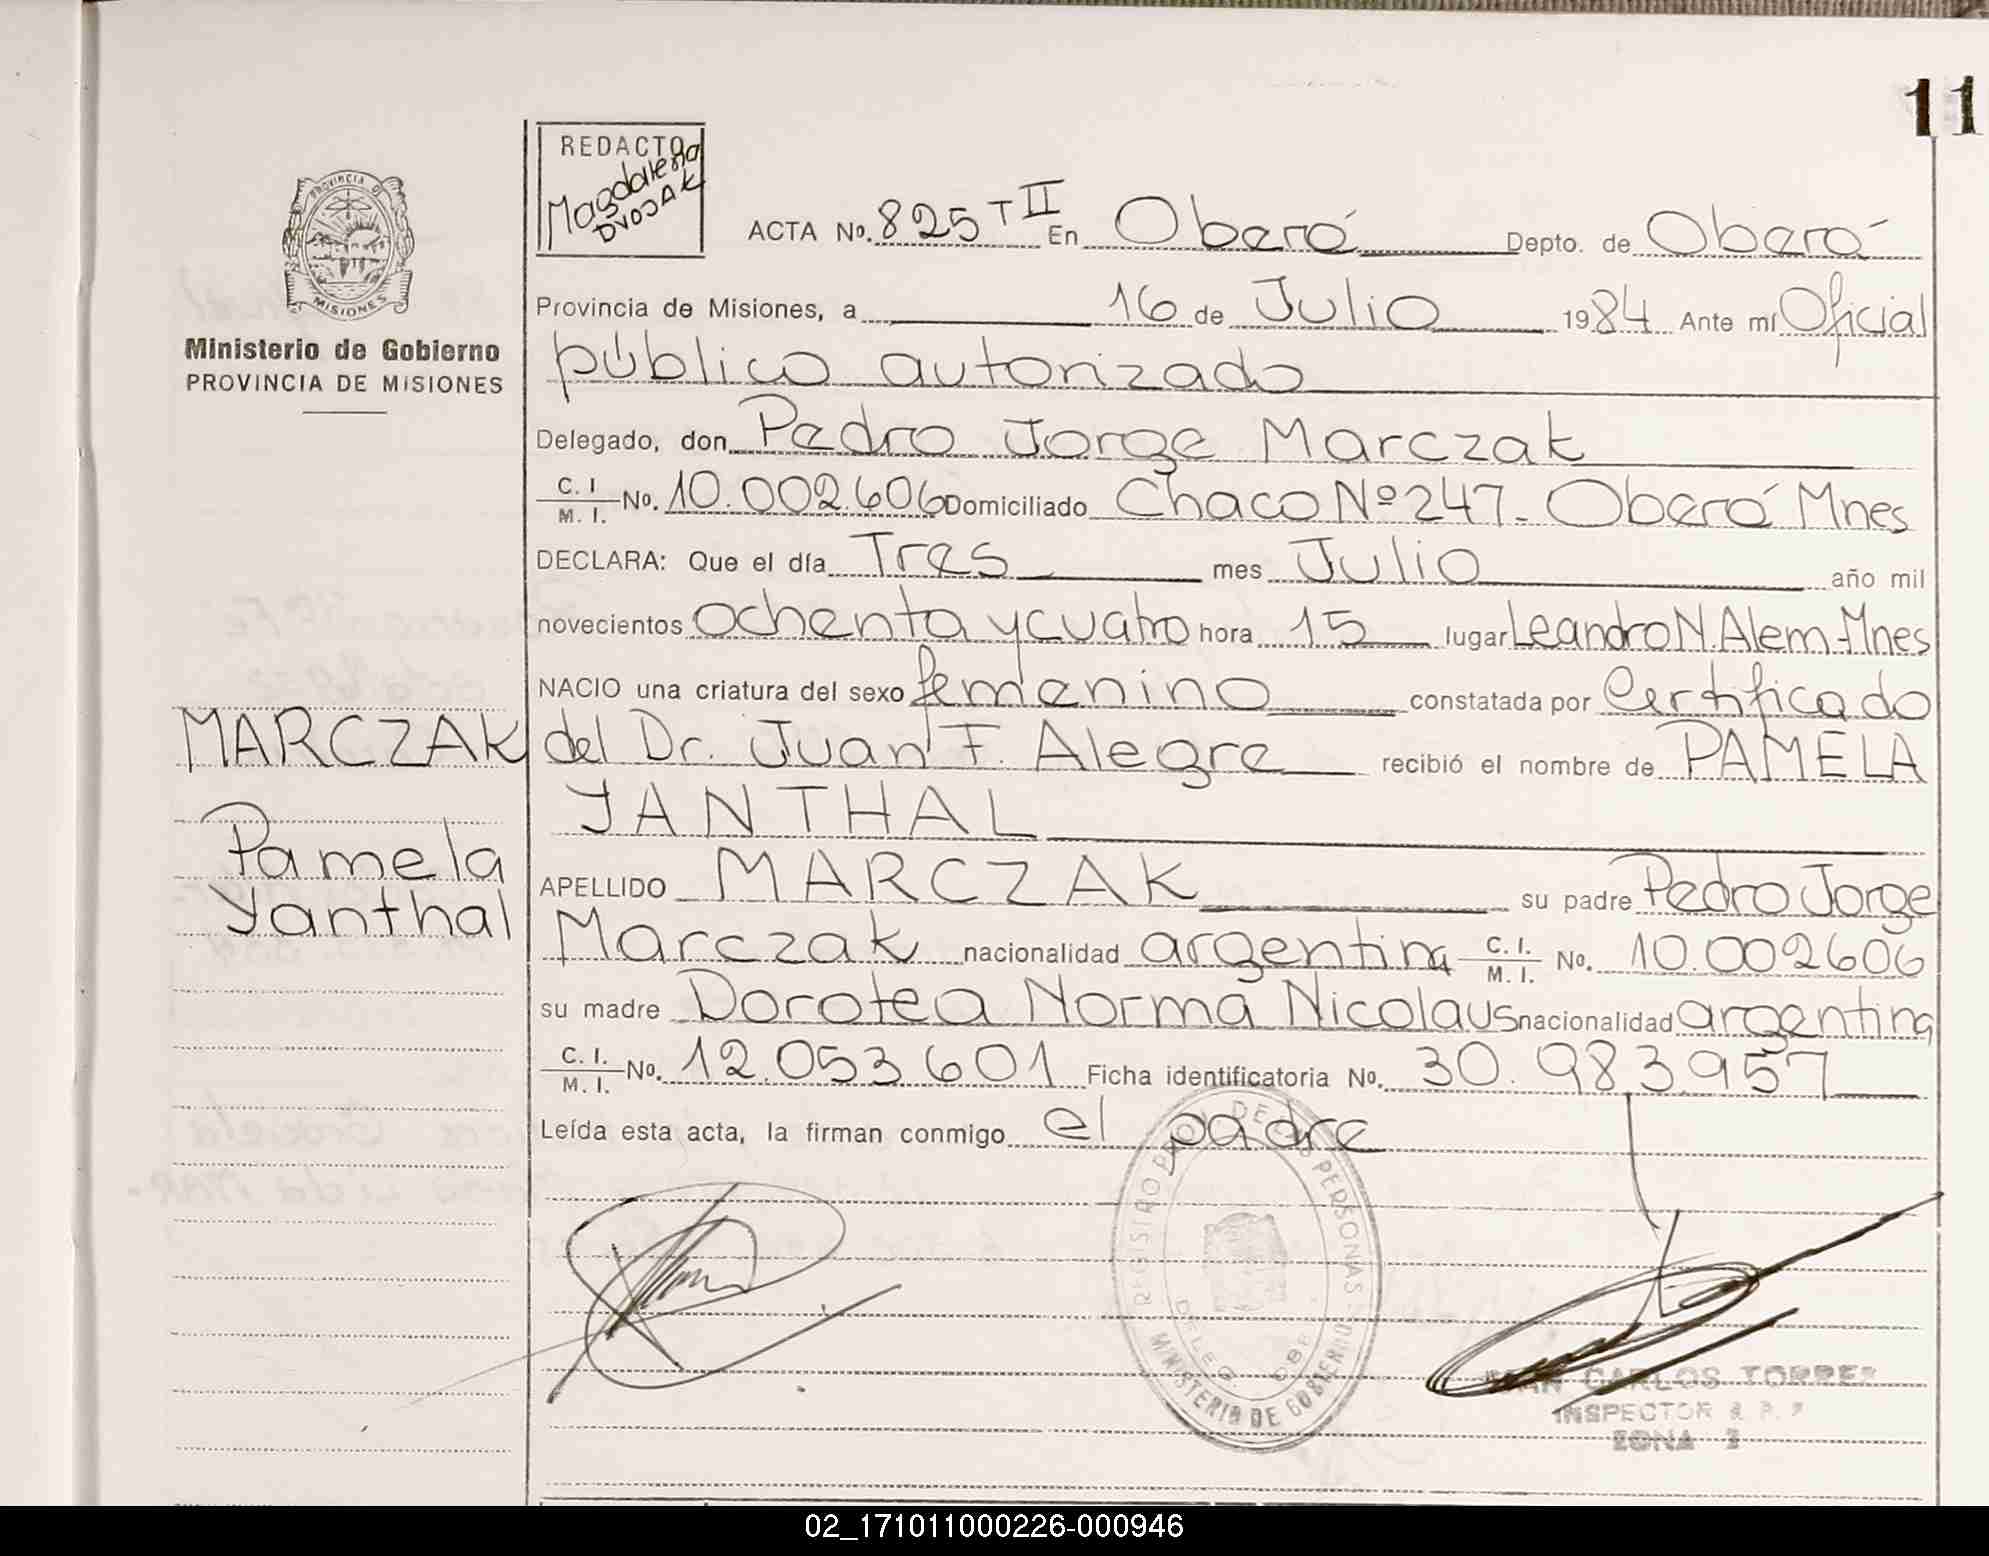 11
PROVINCIA DE
MISIONES
Ministerio de Gobierno
PROVINCIA DE MISIONES
REDACTO
Magdalena
DVOJAK
ACTA No. 825 T II En Oberá Depto. de Oberá
Provincia de Misiones, a 16 de Julio 1984 Ante mí Oficial
público autorizado
Delegado, don Pedro Jorge Marczak
C. I. / M. I. No. 10.002.606 Domiciliado Chaco Nº 247 - Oberá Mnes
DECLARA: Que el día Tres mes Julio año mil
novecientos ochenta y cuatro hora 15 lugar Leandro N. Alem - Mnes
NACIO una criatura del sexo femenino constatada por Certificado
del Dr. Juan F. Alegre recibió el nombre de PAMELA
YANTHAL
APELLIDO MARCZAK su padre Pedro Jorge
Marczak nacionalidad argentina C. I. / M. I. No. 10.002606
su madre Dorotea Norma Nicolaus nacionalidad argentina
C. I. / M. I. No. 12.053.601 Ficha identificatoria No. 30.983.957
Leída esta acta, la firman conmigo el padre
MARCZAK
Pamela
Yanthal
DE LAS PERSONAS
MINISTERIO DE GOBIERNO
CARLOS TORRES
INSPECTOR
ZONA
02_171011000226-000946